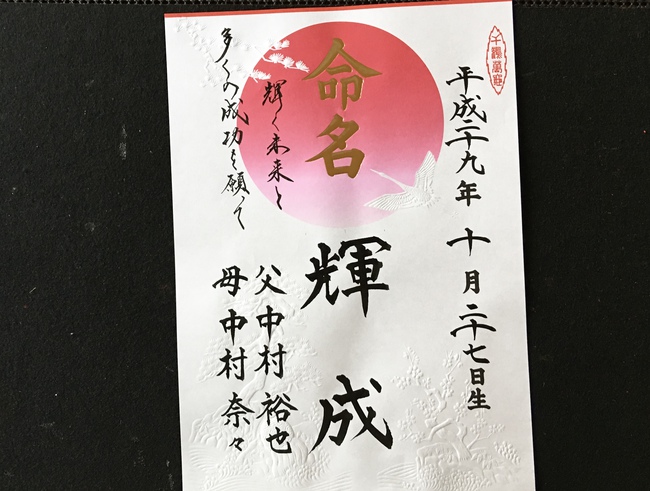 平成二十九年 十月二十七日生
命名
輝成
輝く未来と
多くの成功を願って
父 中村 裕也
母 中村 奈々